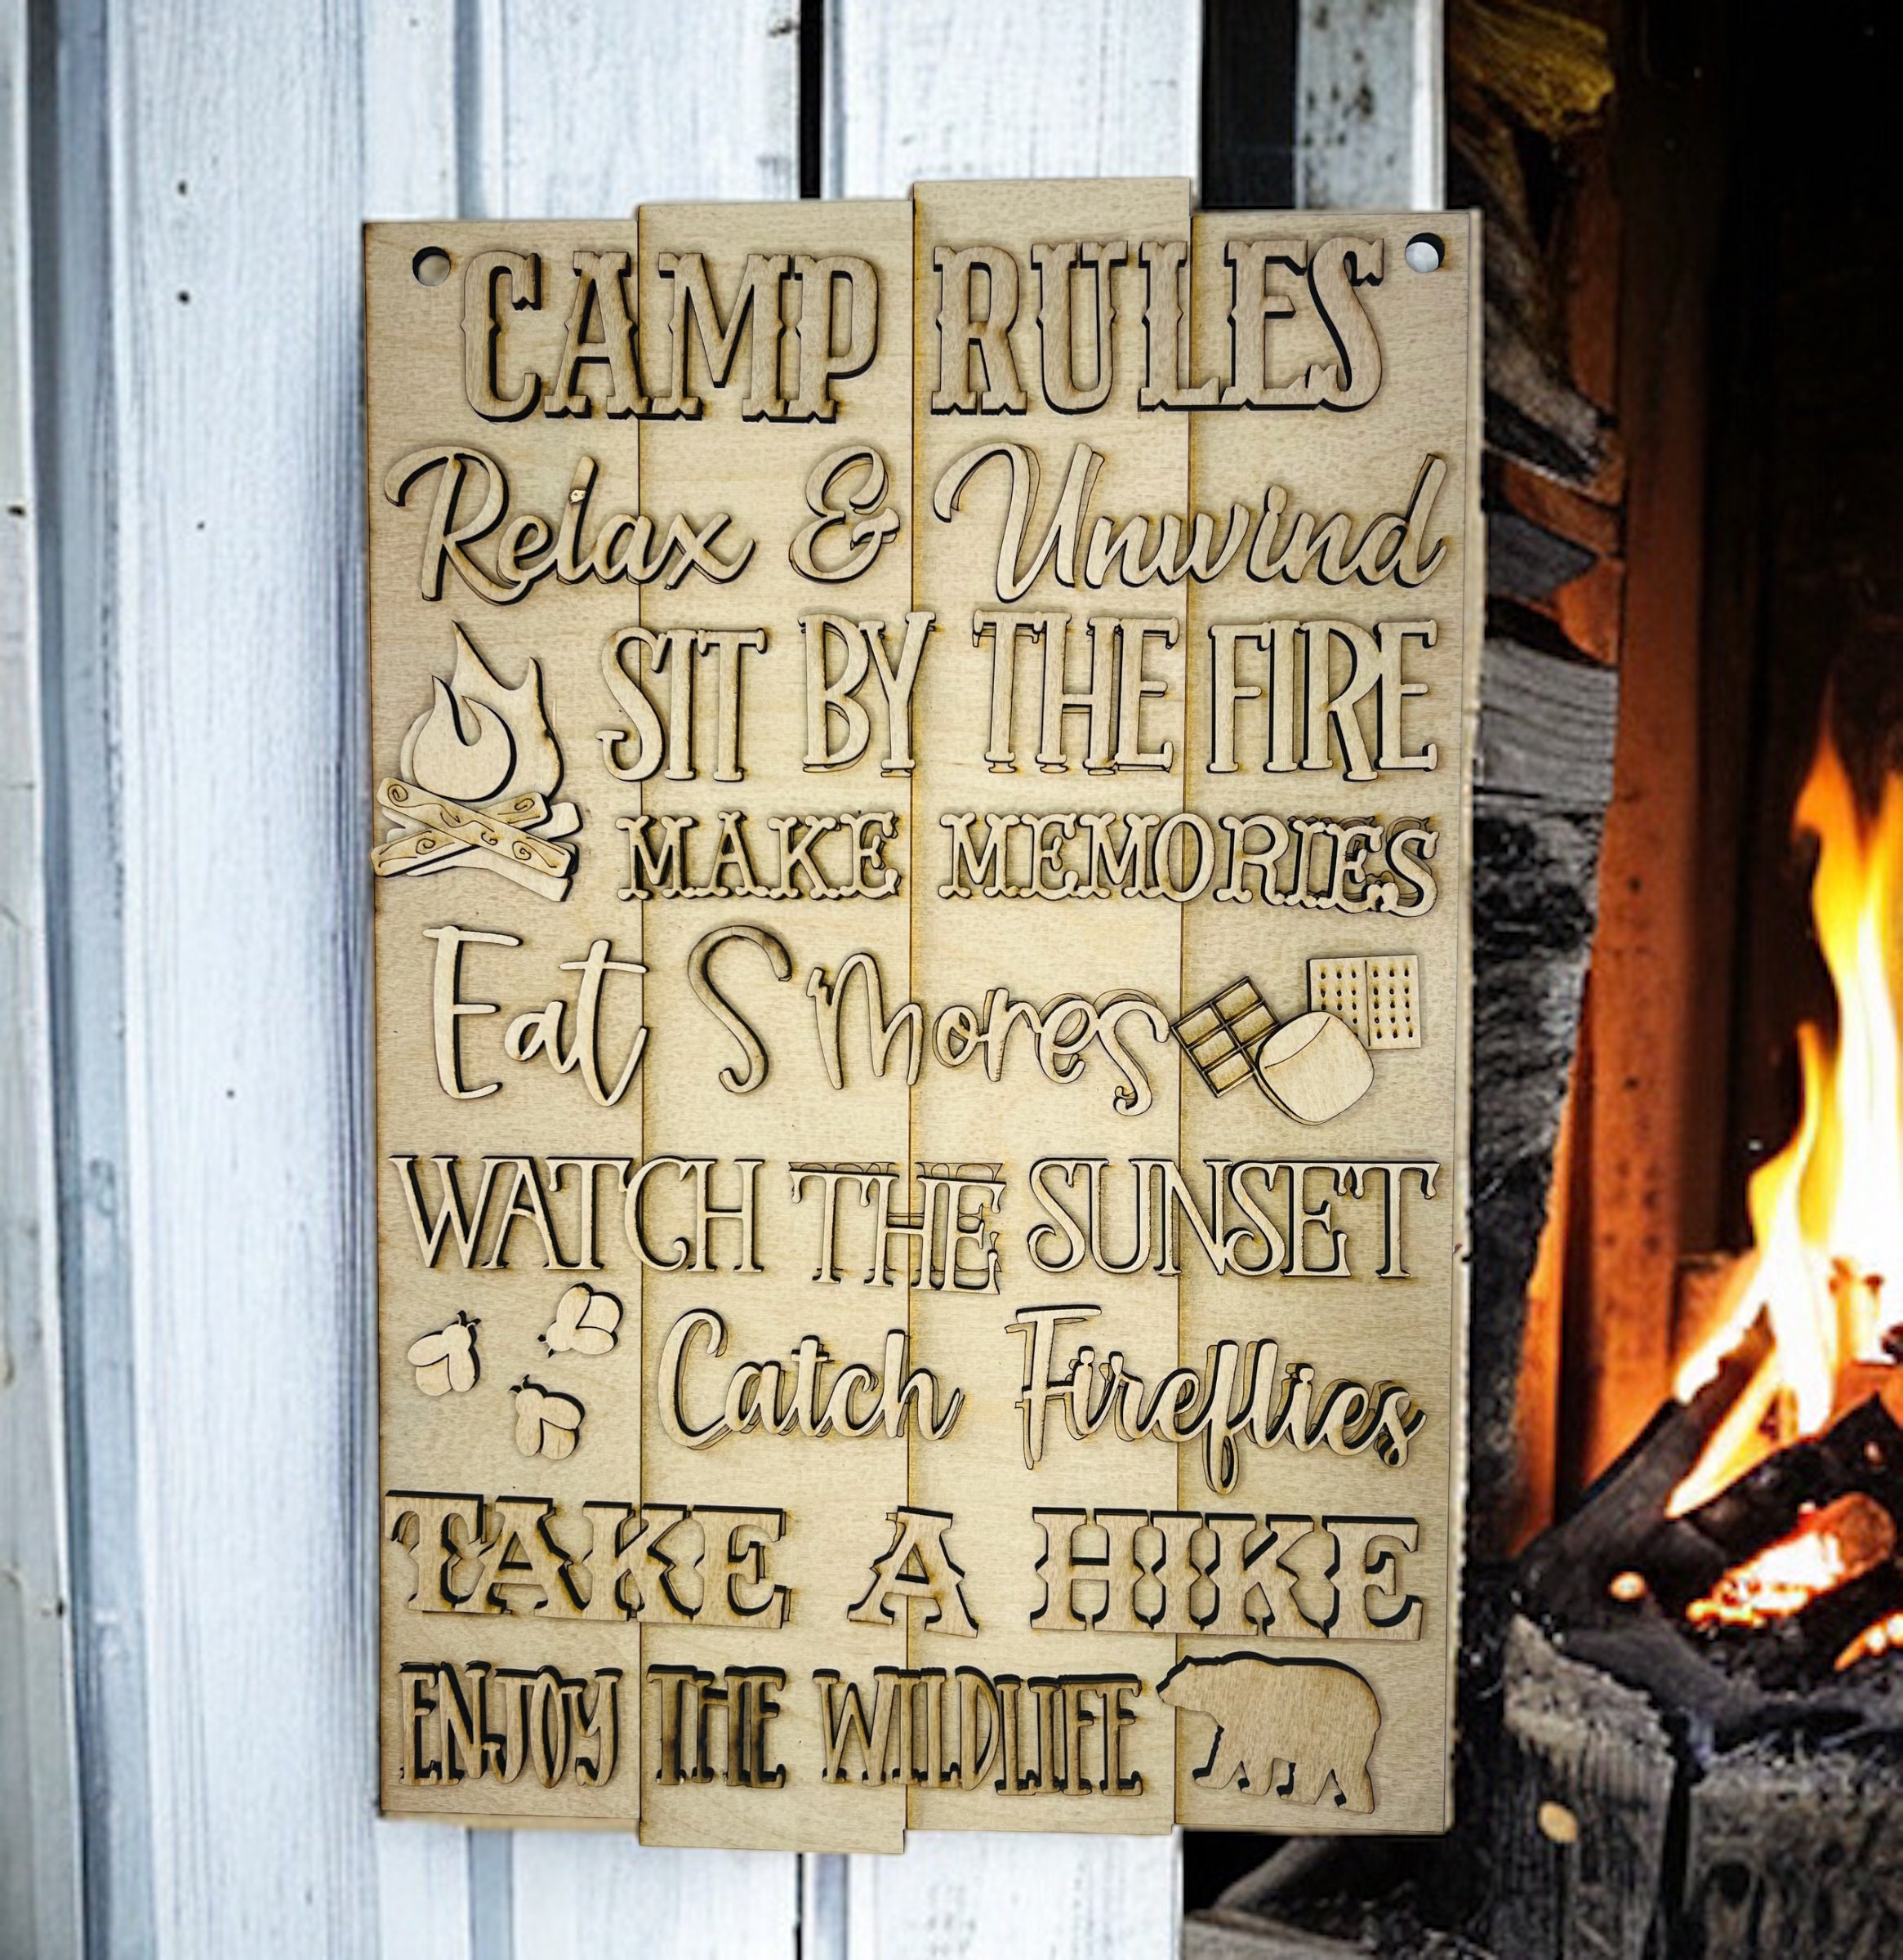 CAMP RULES
Relax & Unwind
SIT BY THE FIRE
MAKE MEMORIES
Eat S'mores
WATCH THE SUNSET
Catch Fireflies
TAKE A HIKE
ENJOY THE WILDLIFE